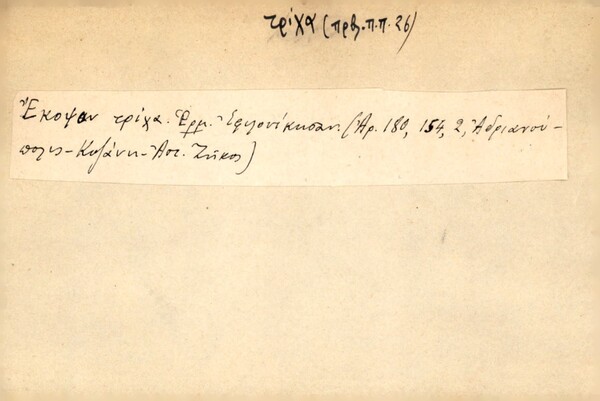 τρίχα (πρβ. π.π. 26)
Ἔκοψαν τρίχα. Ἑρμ. Ἐφιλονίκησαν. (Ἀρ. 180, 154, 2, Ἀδριανού-
πολις - Κοζάνη - Ἀστ. Ζῆκος)